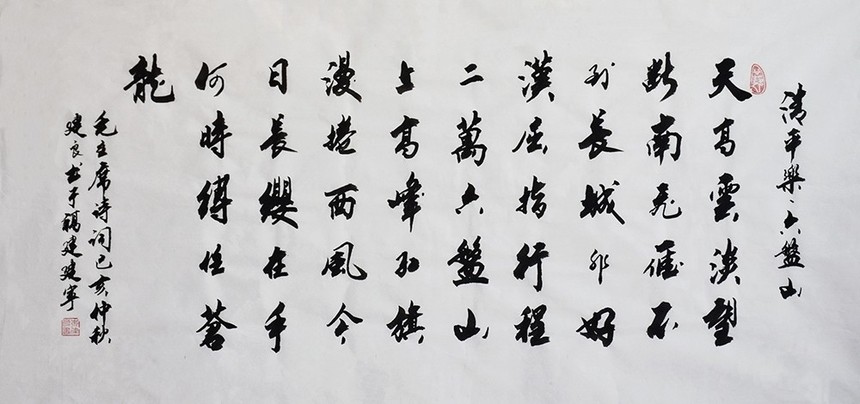 清平樂、六盤山
天高雲淡望
断南飛雁不
到長城非好
漢屈指行程
二萬六盤山
上高峰紅旗
漫捲西風今
日長纓在手
何時縛住蒼
龍
毛主席诗词己亥仲秋
建良书于福建建寧